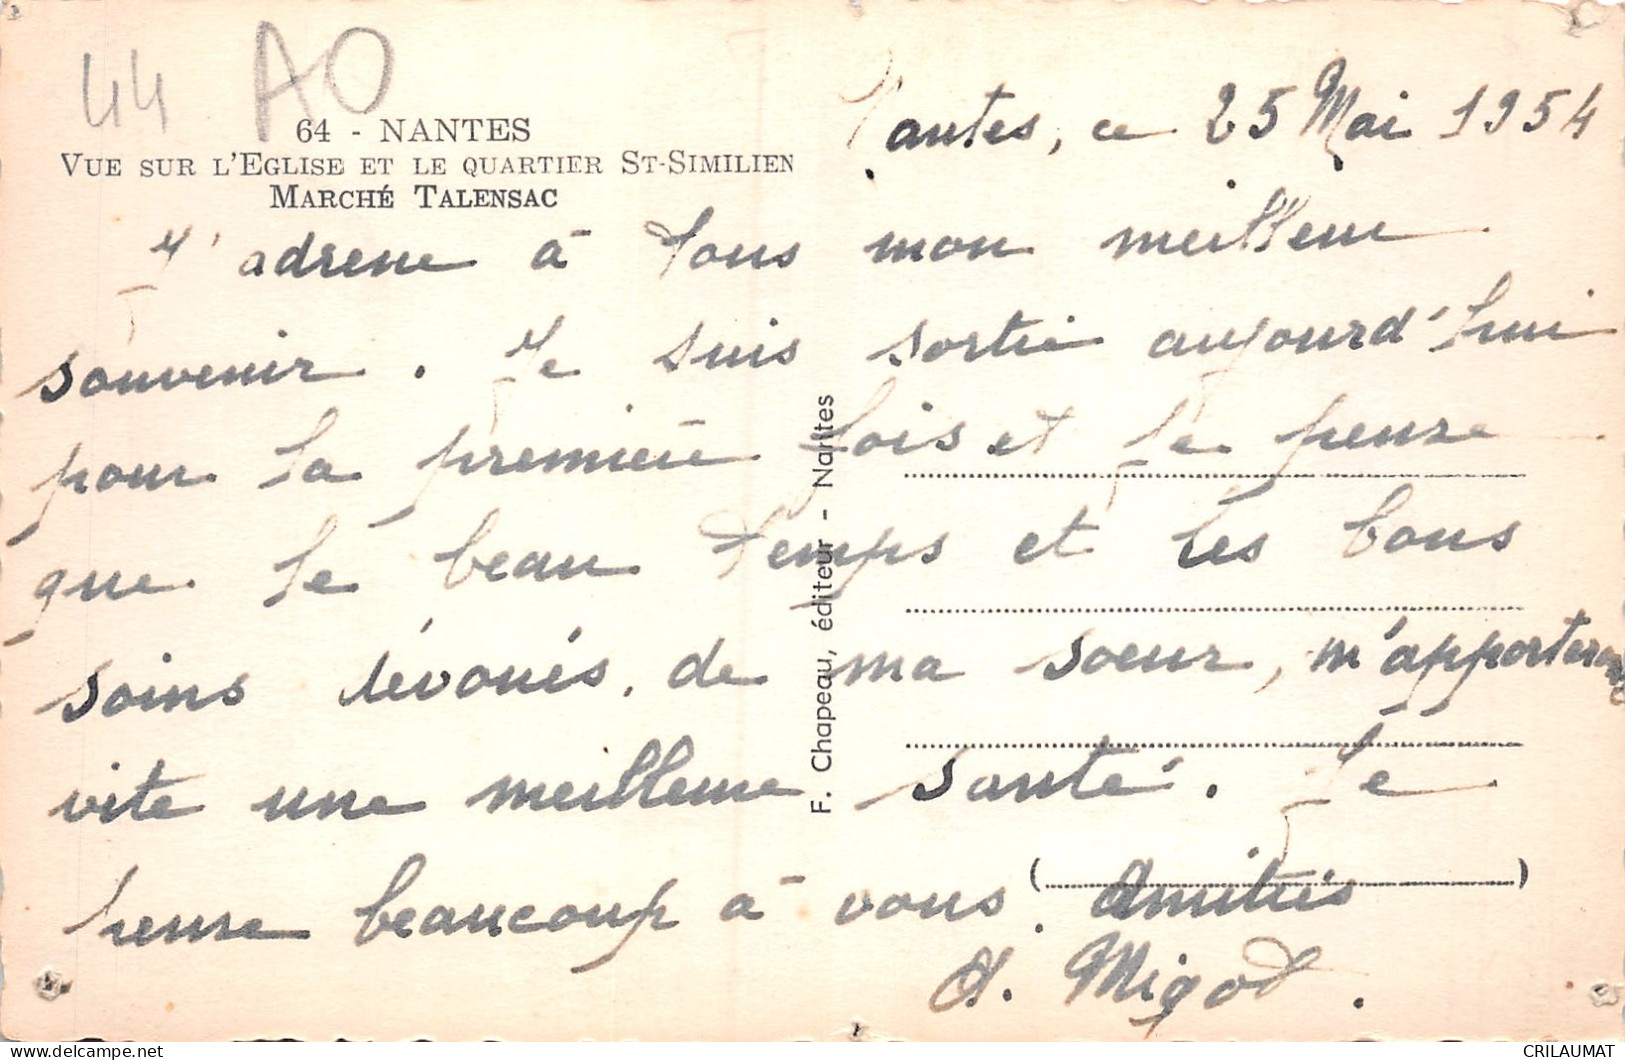 44 AO
64 - NANTES
VUE SUR L'EGLISE ET LE QUARTIER ST-SIMILIEN
MARCHÉ TALENSAC
Nantes, ce 25 Mai 1954
J'adresse à tous mon meilleur
souvenir. Je suis sortie aujourd'hui
pour la première fois et je pense
que le beau temps et les bons
soins dévoués, de ma soeur, m'apporteront
vite une meilleure santé. Je
pense beaucoup à vous. Amitiés
A. Migot.
F. Chapeau, éditeur - Nantes
CRILAUMAT